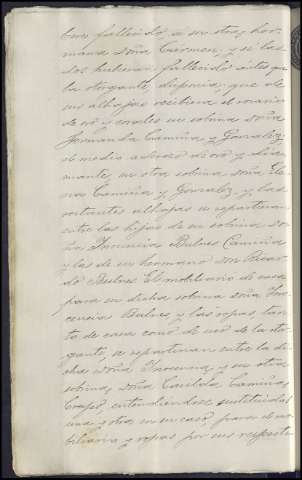 biere fallecido a su otra her-
mana doña Carmen, y si las
dos hubieran fallecido antes que
la otorgante, dispone, que de
sus alhajas recibiera el rosario
de oro y corales su sobrina doña
Fernanda Camiña y Gonzalez;
el medio aderezo de oro y dia-
mante, su otra sobrina doña Ele-
na Camiña y Gonzalez y las
restantes alhajas se repartieran
entre las hijas de su sobrina do-
ña Inocencia Bulnes Camiña
y las de su hermano don Ricar-
do Bulnes. El mobiliario de casa
para su dicha sobrina doña Ino-
cencia Bulnes y las ropas tan-
to de casa como de uso de la otor-
gante, se repartieran entre la di-
cha doña Inocencia y su otra
sobrina doña Casilda Camiña
Crespo, entendiéndose sustituidas
una y otra en su caso, para el mo-
biliario y ropas por sus respecti-